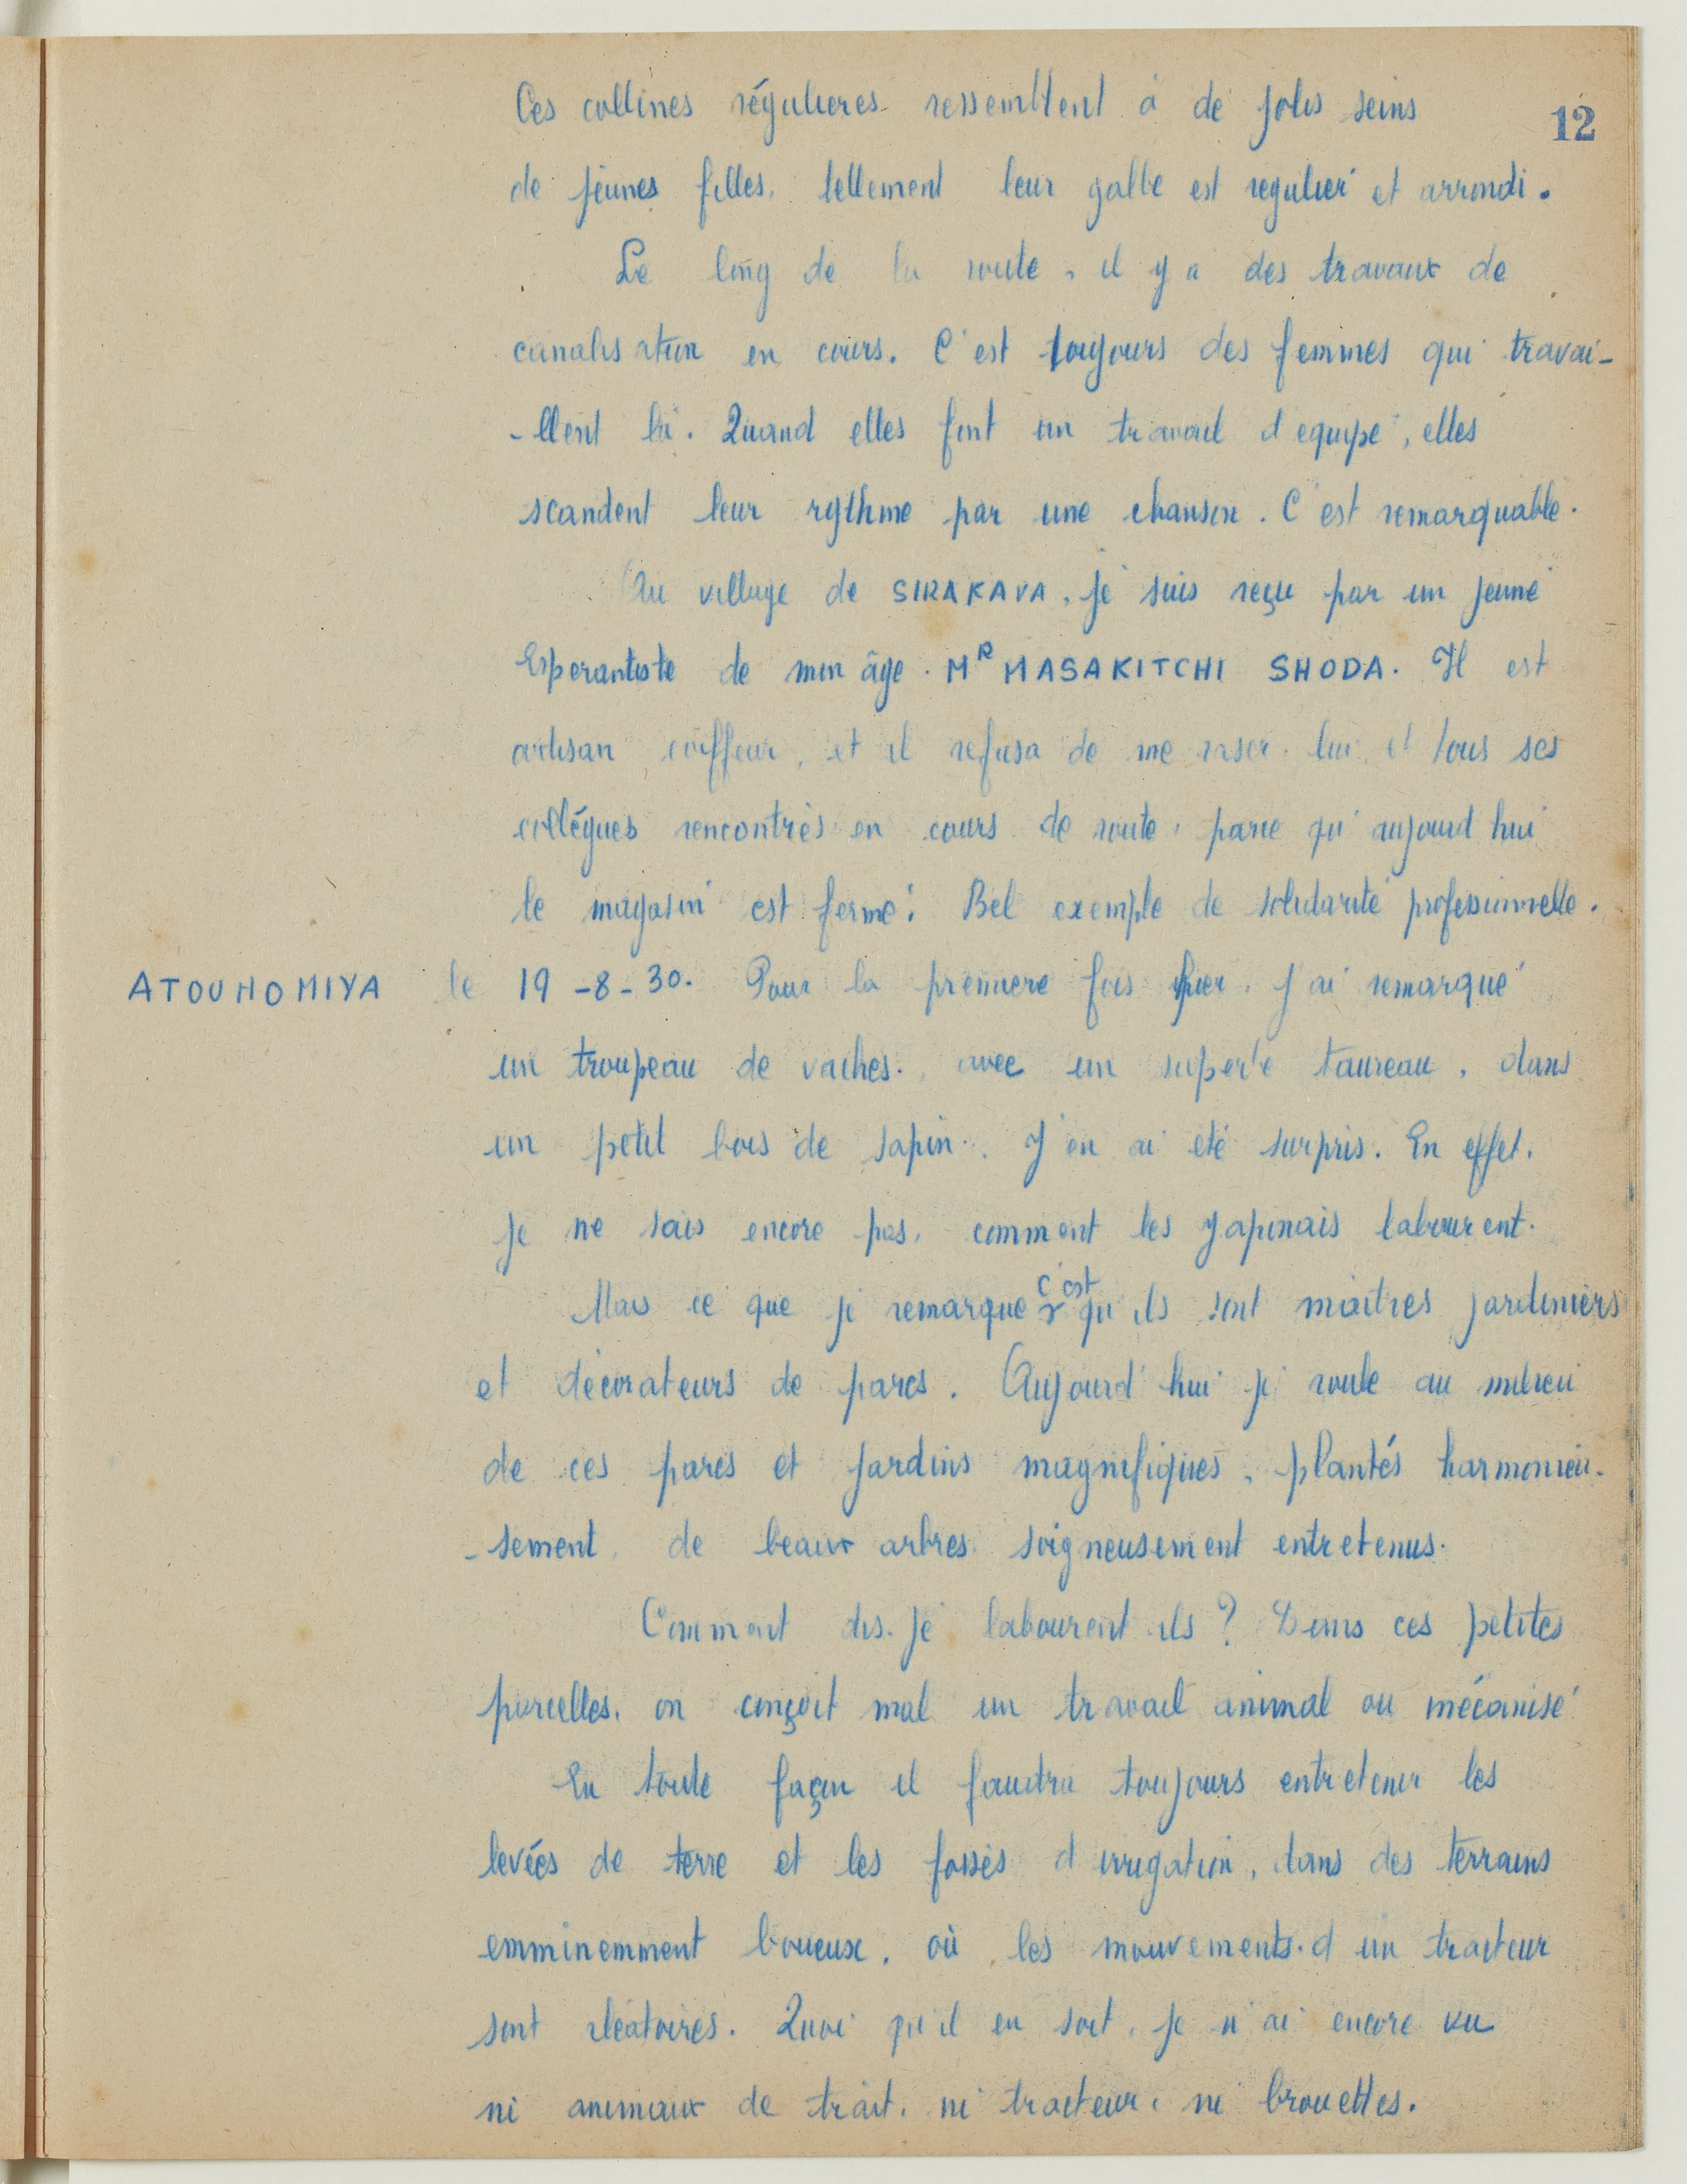 12
Ces collines régulieres ressemblent à de jolis seins
de jeunes filles, tellement leur galbe est regulier et arrondi.
Le long de la route, il y a des travaux de
canalisation en cours. C'est toujours des femmes qui travai-
-llent là. Quand elles font un travail d'equipe, elles
scandent leur rythme par une chanson. C'est remarquable.
Au village de SIRAKAVA, je suis reçu par un jeune
Esperantiste de mon âge. MR MASAKITCHI SHODA. Il est
artisan coiffeur, et il refusa de me raser. lui, et tous ses
collégues rencontrès en cours de route, parce qu'aujourd'hui
le magasin est fermé! Bel exemple de solidarité professionnelle.
ATOUNOMIYA le 19-8-30. Pour la premiere fois hier, j'ai remarqué
un troupeau de vaches, avec un superbe taureau, dans
un petit bois de sapin. J'en ai eté surpris. En effet,
je ne sais encore pas, comment les Japonais labourent.
Mais ce que je remarque c'est qu'ils sont maitres jardiniers
et décorateurs de parcs. Aujourd'hui je roule au milieu
de ces parcs et jardins magnifiques, plantés harmonieu-
-sement, de beaux arbres soigneusement entretenus.
Comment dis-je labourent-ils? Dans ces petites
parcelles, on conçoit mal un travail animal ou mécanisé
En toute façon il faudra toujours entretenir les
levées de terre et les fossés d'irrigation, dans des terrains
emminemment boueux, où les mouvements d'un tracteur
sont aléatoires. Quoi qu'il en soit, je n'ai encore vu
ni animaux de trait, ni tracteur, ni brouettes.